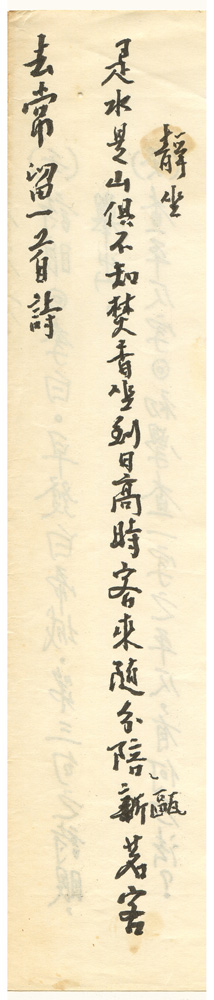 靜坐
是水是山俱不知焚香坐到日高時客來隨分陪新甌茗客
去常留一首詩